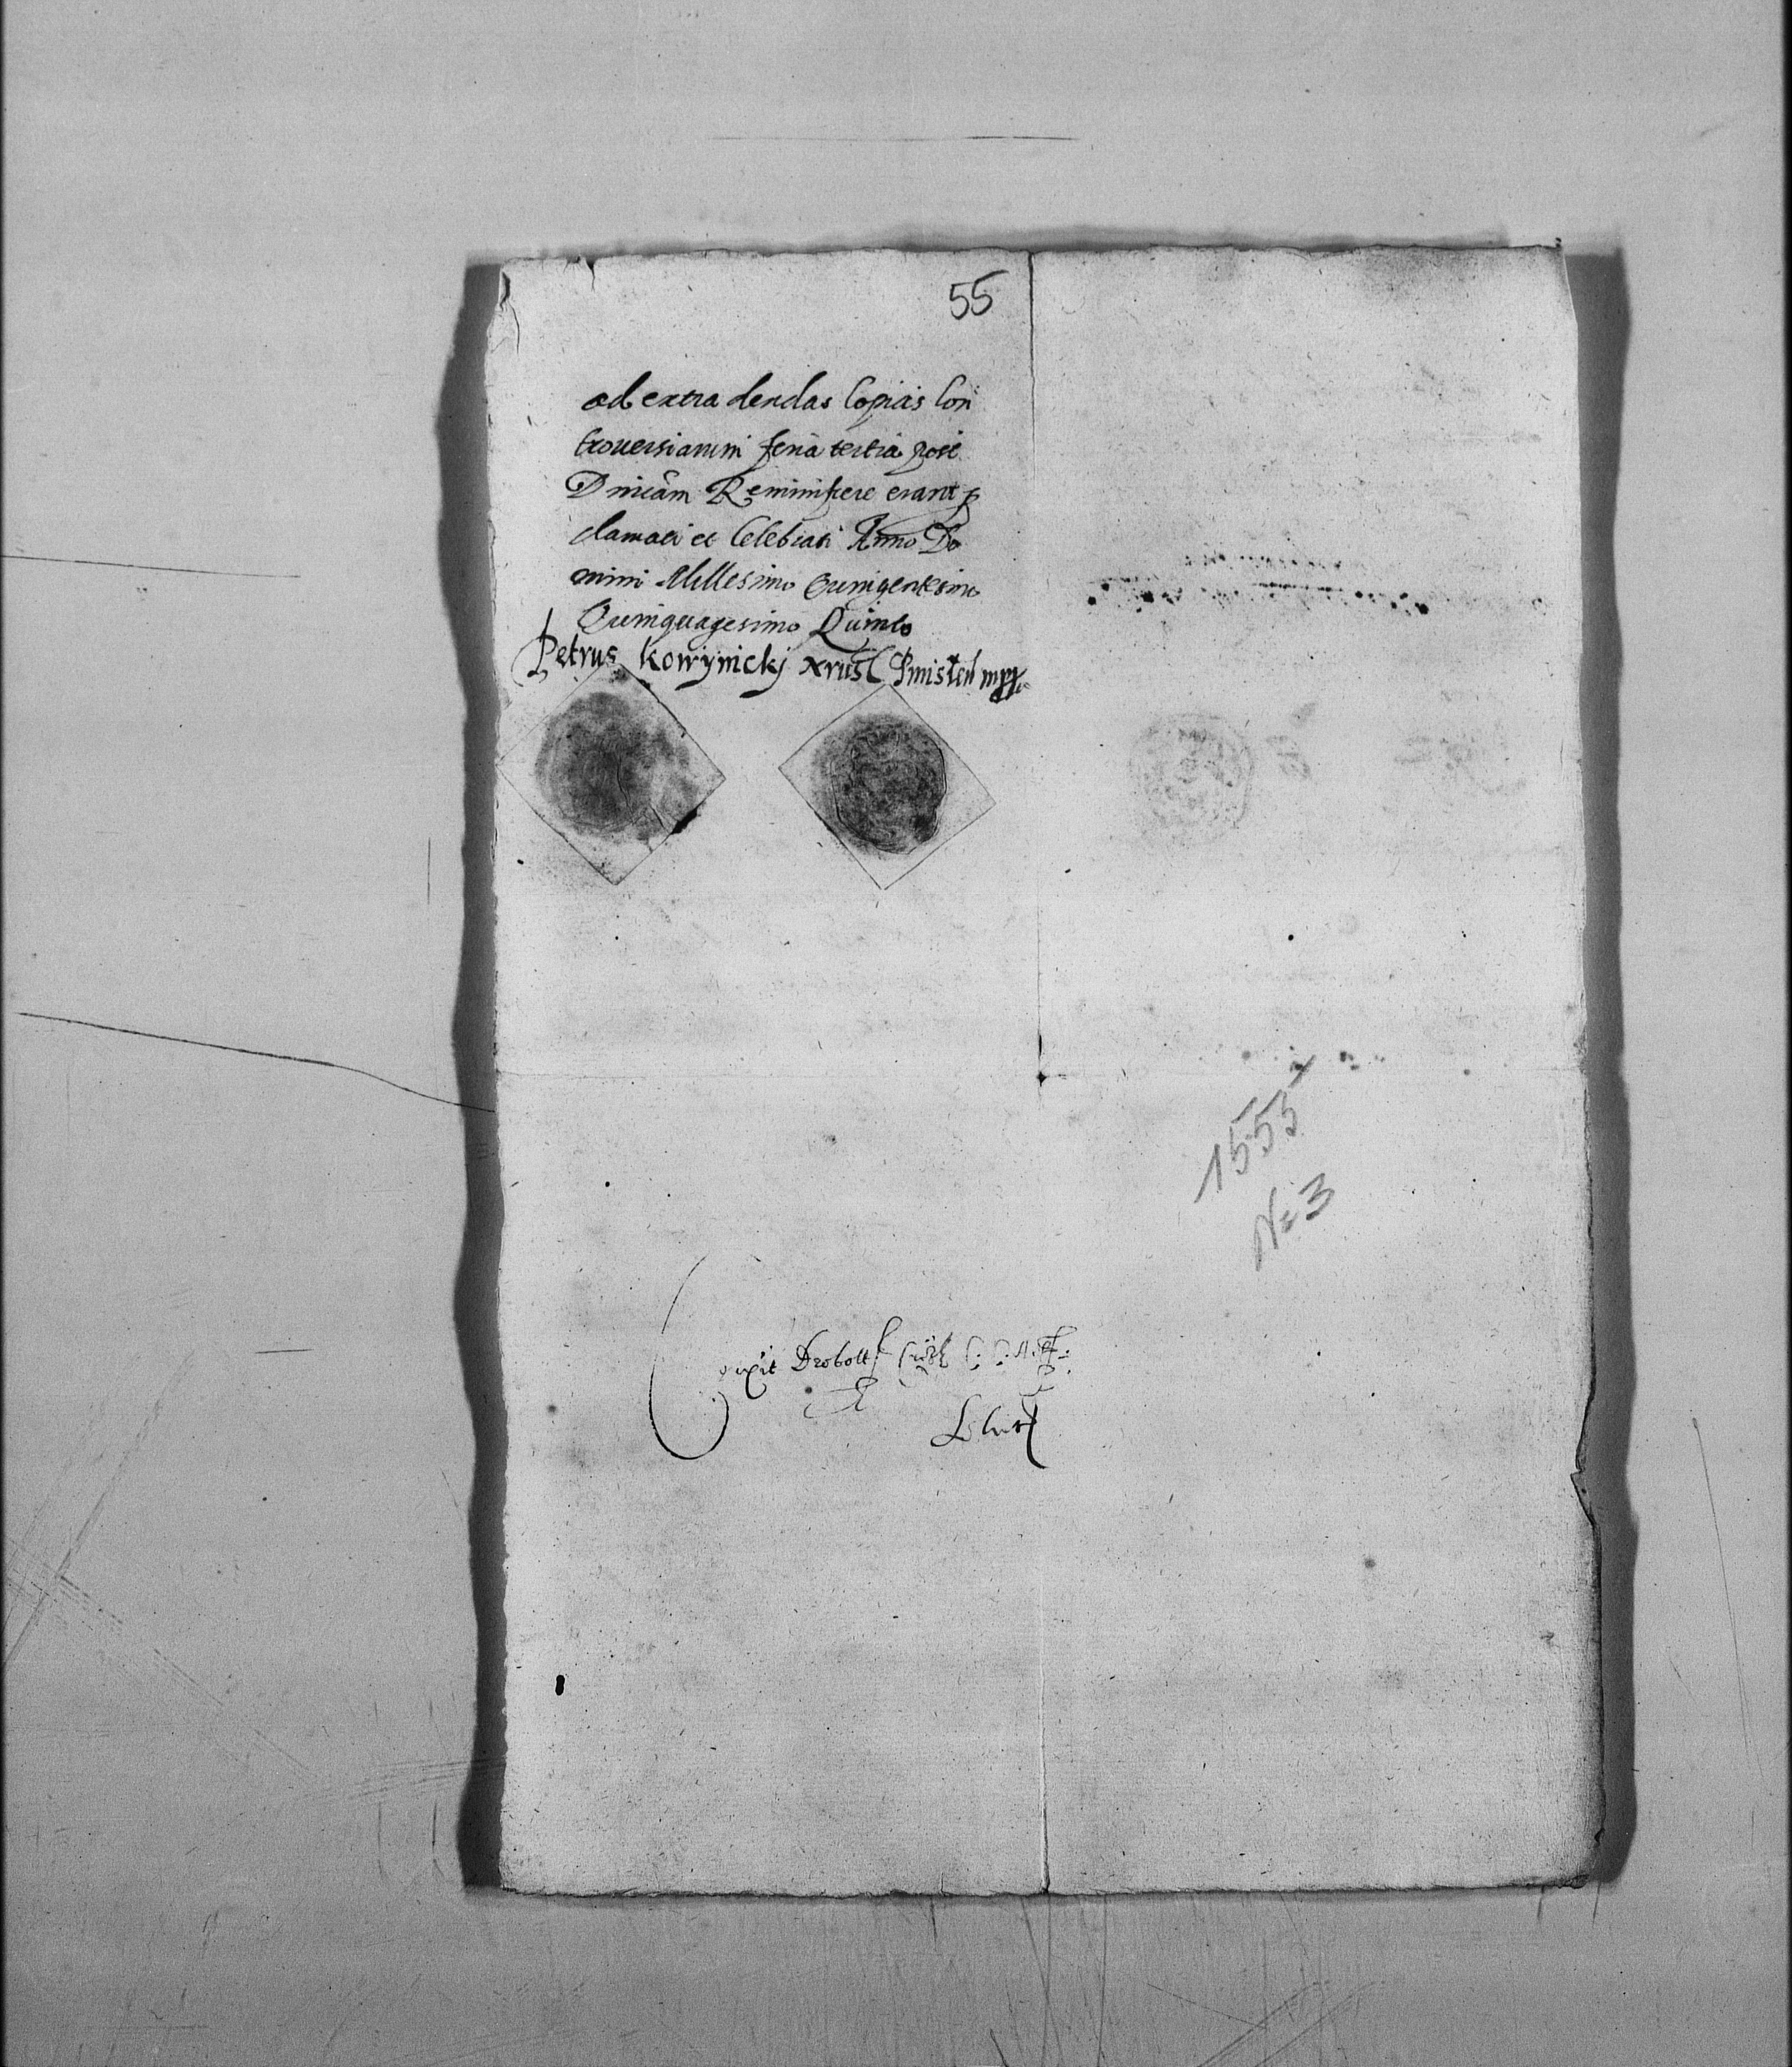 55
ad extra dendas Copias Con
trouersiarum feria tertia post
Dnicam Reminiscere erant p
clamati et Celebrati Anno Do
mini Millesimo Quingentesimo
Quinquagesimo Quinto
Petrus Kowynickj mpp
1555
N= 3